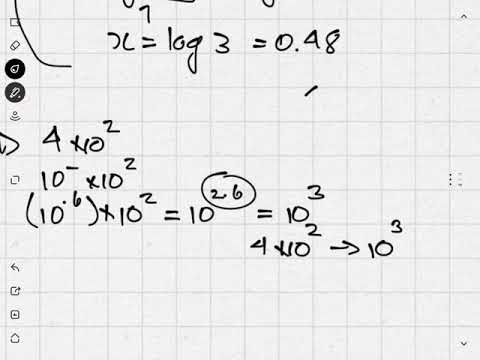 x = log 3 = 0.48
4×10²
10⁻ ×10²
(10·⁶)×10² = 10²·⁶ = 10³
4×10² → 10³